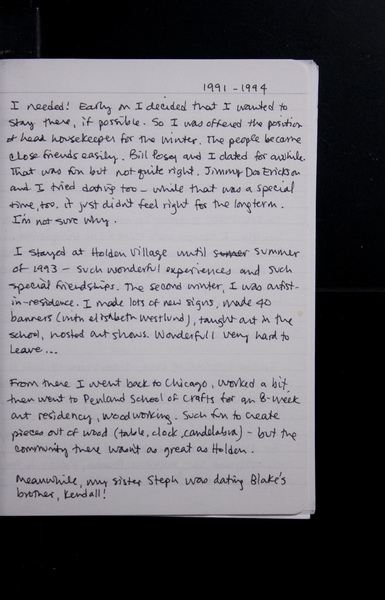 1991 - 1994
I needed! Early on I decided that I wanted to
stay there, if possible. So I was offered the position
of head housekeeper for the winter. The people became
close friends easily. Bill Posey and I dated for awhile.
That was fun but not quite right. Jimmy Dos Erickson
and I tried dating too - while that was a special
time, too, it just didn't feel right for the longterm.
I'm not sure why.
I stayed at Holden Village until summer
of 1993 - such wonderful experiences and such
special friendships. The second winter, I was artist-
in-residence. I made lots of new signs, made 40
banners (with Elisabeth Westlund), taught art in the
school, hosted art shows. Wonderful! Very hard to
leave...
From there I went back to Chicago, worked a bit,
then went to Penland School of Crafts for an 8-week
art residency, woodworking. Such fun to create
pieces out of wood (table, clock, candelabra) - but the
community there wasn't as great as Holden.
Meanwhile, my sister Steph was dating Blake's
brother, Kendall!